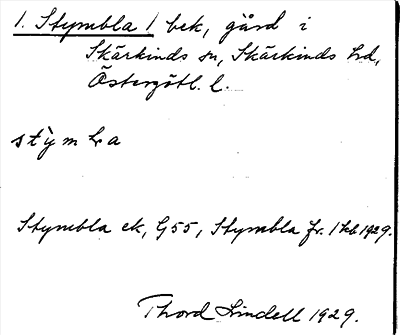 1. Stymbla 1 bek, gård i
Skärkinds sn, Skärkinds hd,
Östergötl. l.
Stymbla ek, G55, Stymbla fr. 1929.
Thord Lindell 1929.